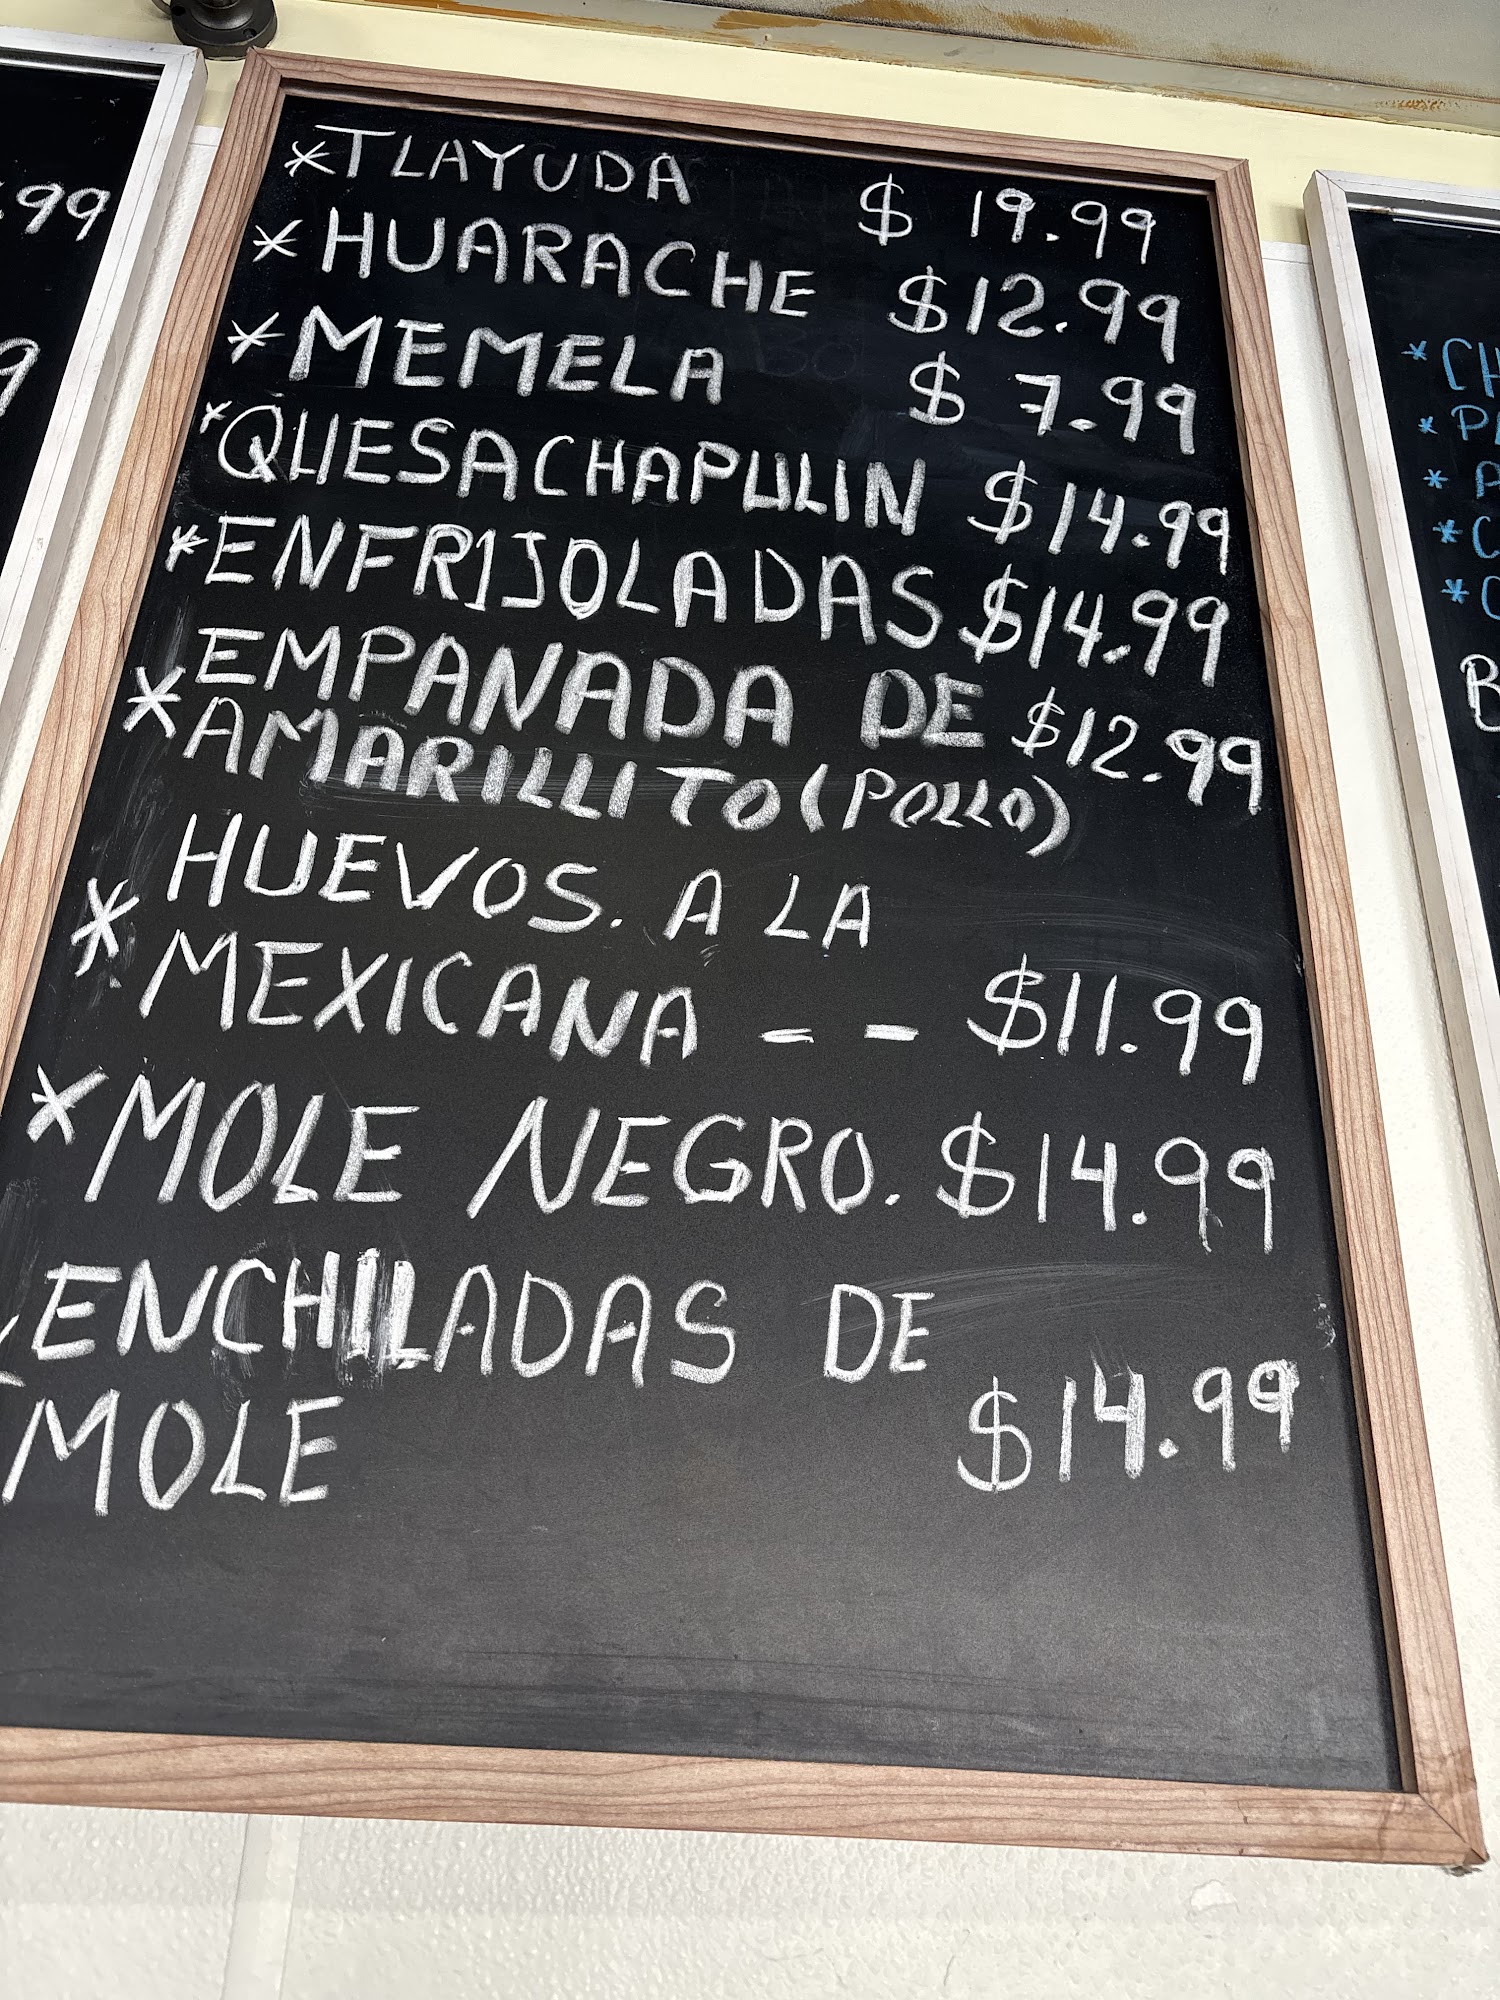 .99
9
*TLAYUDA $ 19.99
*HUARACHE $12.99
*MEMELA $ 7.99
*QUESACHAPULIN $14.99
*ENFRIJOLADAS $14.99
*EMPANADA DE $12.99
AMARILLITO (POLLO)
*HUEVOS. A LA
MEXICANA - - $11.99
*MOLE NEGRO. $14.99
ENCHILADAS DE
MOLE $14.99
* CH
* P
* A
* C
* C
B